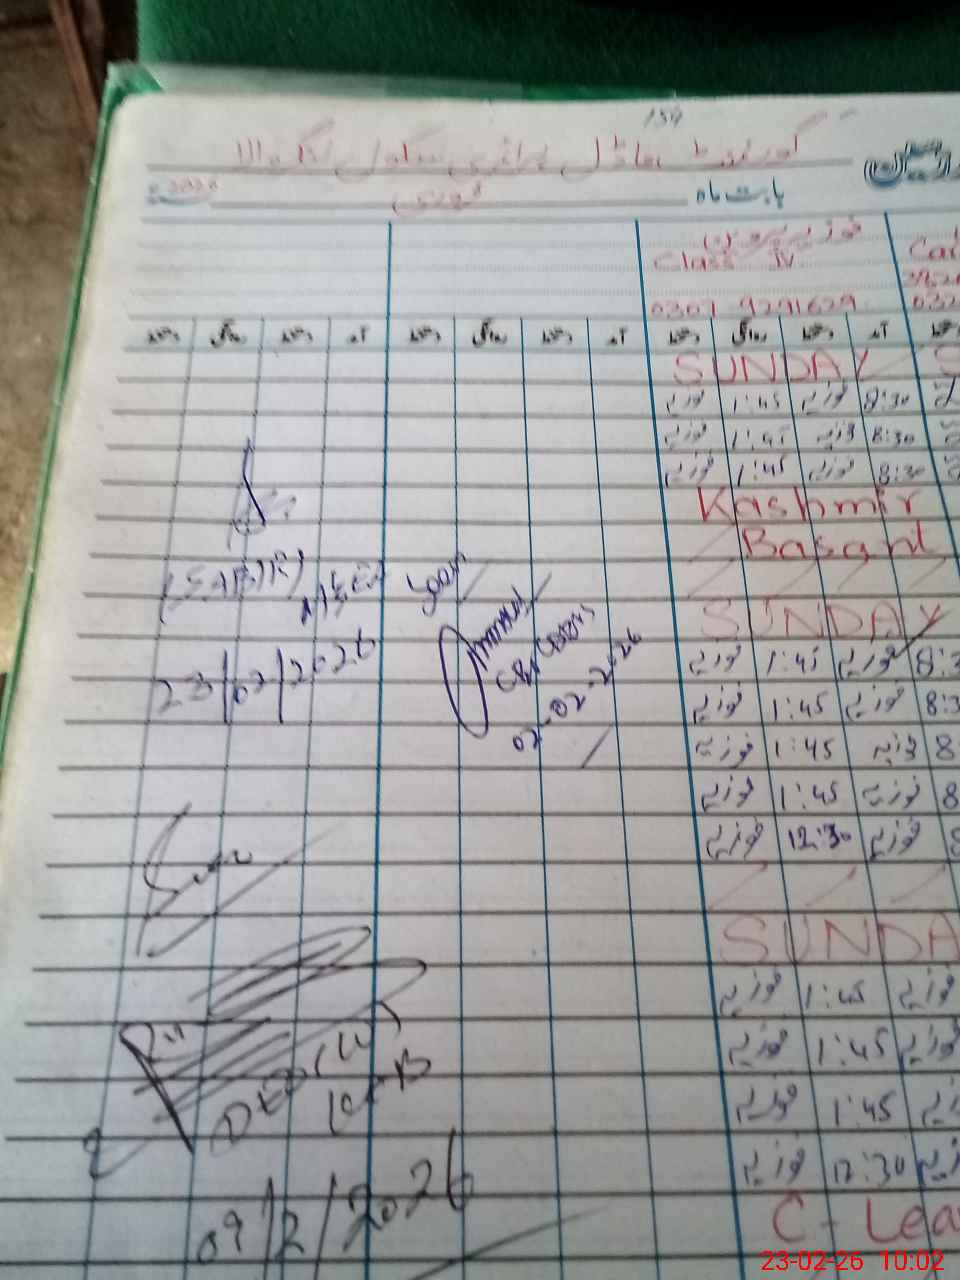 159
گورنمنٹ ماڈل پرائمری سکول
2026 فروری بابت ماہ
فوزیہ پروین
Class IV
0307 9291629
دستخط روانگی دستخط آمد دستخط روانگی دستخط آمد دستخط روانگی دستخط آمد
SUNDAY
فوزیہ 1:45 فوزیہ 8:30
فوزیہ 1:45 فوزیہ 8:30
فوزیہ 1:45 فوزیہ 8:30
Kashmir
Basant
(SABIR)
Seen
SUNDAY
23/02/2026
02-02-2026
فوزیہ 1:45 فوزیہ 8:3
فوزیہ 1:45 فوزیہ 8:3
فوزیہ 1:45 فوزیہ 8
فوزیہ 1:45 فوزیہ 8
فوزیہ 12:30 فوزیہ 8
SUNDA
فوزیہ 1:45 فوزیہ
فوزیہ 1:45 فوزیہ
فوزیہ 1:45
فوزیہ 12:30 فوزیہ
09/2/2026
C-Lea
23-02-26 10:02